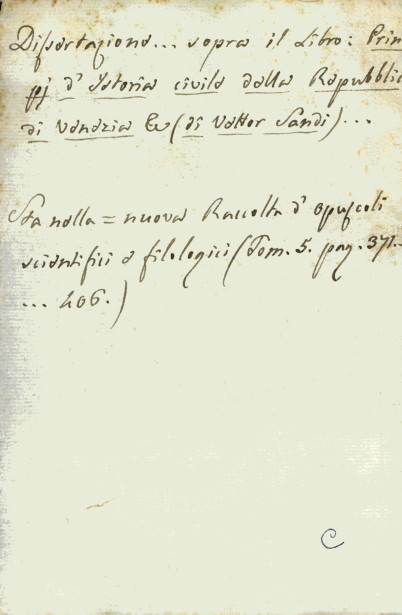 Dissertazione... sopra il Libro: Prin
pj d' Istoria civile della Repubblic
di Venezia &c (di Vettor Sandi)...
Sta nella = nuova Raccolta d' opuscoli
scientifici e filologici (Tom. 5. pag. 371.-
... 406.)
C